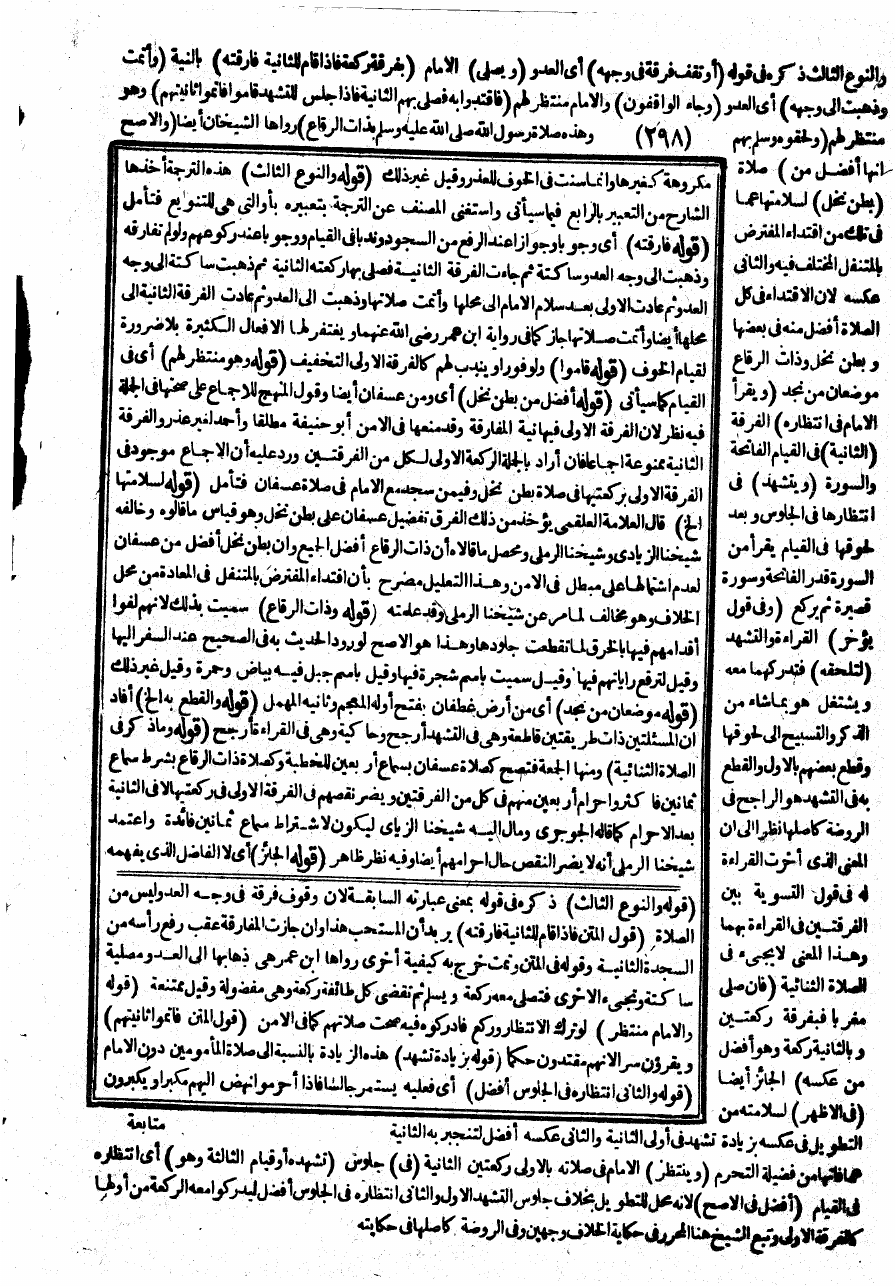 والنوع الثالث ذكره فى قوله (أو تقف فرقة فى وجهه) أى العدو (ويصلى) الامام (بفرقة ركعة فاذا قام للثانية فارقته) بالنية (وأتمت
وذهبت الى وجهه) أى العدو (وجاء الواقفون) والامام منتظر لهم (فاقتدوا به فصلى بهم الثانية فاذا جلس للتشهد قاموا فأتموا ثانيتهم) وهو
منتظر لهم (ولحقوه وسلم بهم
(٢٩٨)
وهذه صلاة رسول الله صلى الله عليه وسلم بذات الرقاع) رواها الشيخان أيضا (والاصح
انها أفضل من) صلاة
(بطن نخل) لسلامتها عما
فى تلك من اقتداء المفترض
بالمتنفل المختلف فيه والثانى
عكسه لان الاقتداء فى كل
الصلاة أفضل منه فى بعضها
وبطن نخل وذات الرقاع
موضعان من نجد (ويقرأ
الامام فى انتظاره) الفرقة
(الثانية) فى القيام الفاتحة
والسورة (ويتشهد) فى
انتظارها فى الجلوس وبعد
لحوقها فى القيام يقرأ من
السورة قدر الفاتحة وسورة
قصيرة ثم يركع (وفى قول
يؤخر) القراءة والتشهد
(لتلحقه) فتدركهما معه
ويشتغل هو بما شاء من
الذكر والتسبيح الى لحوقها
وقطع بعضهم بالاول والقطع
به فى التشهد هو الراجح فى
الروضة كأصلها نظرا الى ان
المعنى الذى أخرت القراءة
له فى قول التسوية بين
الفرقتين فى القراءة بهما
وهذا المعنى لا يجىء فى
الصلاة الثنائية (فان صلى
مغربا فبفرقة ركعتين
وبالثانية ركعة وهو أفضل
من عكسه) الجائز أيضا
(فى الاظهر) لسلامته من
التطويل فى عكسه بزيادة تشهد فى أولى الثانية والثانى عكسه أفضل لتنجبر به الثانية
عما فاتها من فضيلة التحرم (وينتظر) الامام فى صلاته بالاولى ركعتين الثانية (فى) جلوس (تشهده أو قيام الثالثة وهو) أى انتظاره
فى القيام (أفضل فى الاصح) لانه محل للتطويل بخلاف جلوس التشهد الاول والثانى انتظاره فى الجلوس أفضل ليدركوا معه الركعة من أولها
كالفرقة الاولى وتبع الشيخ هنا المحرر فى حكاية الخلاف وجهين وفى الروضة كأصلها فى حكايته
متابعة
مكروهة كغيرها وانما سنت فى الخوف للعذر وقيل غير ذلك (قوله والنوع الثالث) هذه الترجمة أخذها
الشارح من التعبير بالرابع فيما سيأتى واستغنى المصنف عن الترجمة بتعبيره بأو التى هى للتنويع فتأمل
(قوله فارقته) أى وجوبا وجوازا عند الرفع من السجود وندبا فى القيام ووجوبا عند ركوعهم ولو لم تفارقه
وذهبت الى وجه العدو ساكتة ثم جاءت الفرقة الثانية فصلى بها ركعته الثانية ثم ذهبت ساكتة الى وجه
العدو ثم عادت الاولى بعد سلام الامام الى محلها وأتمت صلاتها وذهبت الى العدو ثم عادت الفرقة الثانية الى
محلها أيضا وأتمت صلاتها جاز كما فى رواية ابن عمر رضى الله عنهما ويغتفر لها الافعال الكثيرة بلا ضرورة
لقيام الخوف (قوله قاموا) ولو فورا ويندب لهم كالفرقة الاولى التخفيف (قوله وهو منتظر لهم) أى فى
القيام كما سيأتى (قوله أفضل من بطن نخل) أى ومن عسفان أيضا وقول المنهج للاجماع على صحتها فى الجملة
فيه نظر لان الفرقة الاولى فيها نية المفارقة وقد منعها فى الامن أبو حنيفة مطلقا وأحمد لغير عذر والفرقة
الثانية ممنوعة اجماعا فان أراد بالجملة الركعة الاولى لكل من الفرقتين ورد عليه أن الاجماع موجود فى
الفرقة الاولى بركعتيها فى صلاة بطن نخل وفيمن سجد مع الامام فى صلاة عسفان فتأمل (قوله لسلامتها
الخ) قال العلامة العلقمى يؤخذ من ذلك الفرق تفضيل عسفان على بطن نخل وهو قياس ما قالوه وخالفه
شيخنا الزيادى وشيخنا الرملى ومحصل ما قالاه أن ذات الرقاع أفضل الجميع وان بطن نخل أفضل من عسفان
لعدم اشتمالها على مبطل فى الامن وهذا التعليل مصرح بأن اقتداء المفترض بالمتنفل فى المعادة من محل
الخلاف وهو مخالف لما مر عن شيخنا الرملى وقد علمته (قوله وذات الرقاع) سميت بذلك لانهم لفوا
أقدامهم فيها بالخرق لما تقطعت جلودها وهذا هو الاصح لورود الحديث به فى الصحيح عند السفر اليها
وقيل لترقع راياتهم فيها وقيل سميت باسم شجرة فيها وقيل باسم جبل فيه بياض وحمرة وقيل غير ذلك
(قوله موضعان من نجد) أى من أرض غطفان بفتح أوله المعجم وثانيه المهمل (قوله والقطع به الخ) أفاد
ان المسئلتين ذات طريقتين قاطعة وهى فى التشهد أرجح وحاكية وهى فى القراءة أرجح (قوله وما ذكر فى
الصلاة الثنائية) ومنها الجمعة فتصح كصلاة عسفان بسماع أربعين للخطبة وكصلاة ذات الرقاع بشرط سماع
ثمانين فأكثر واحرام أربعين منهم فى كل من الفرقتين ويضر نقصهم فى الفرقة الاولى فى ركعتها لا فى الثانية
بعد الاحرام كما قاله الجوجرى ومال اليه شيخنا الزيادى ليكون لاشتراط سماع ثمانين فائدة واعتمد
شيخنا الرملى أنه لا يضر النقص حال احرامهم أيضا وفيه نظر ظاهر (قوله الجائز) أى لا الفاضل الذى يفهمه
(قوله والنوع الثالث) ذكره فى قوله بمعنى عبارته السابقة لان وقوف فرقة فى وجه العدو ليس من
الصلاة (قول المتن فاذا قام للثانية فارقته) يريد أن المستحب هذا وان جازت المفارقة عقب رفع رأسه من
السجدة الثانية وقوله فى المتن وتمت خرج به كيفية أخرى رواها ابن عمر هى ذهابها الى العدو مصلية
ساكتة وتجىء الاخرى فتصلى معه ركعة ويسلم ثم تقضى كل طائفة ركعة وهى مفضولة وقيل ممتنعة (قوله
والامام منتظر) لو ترك الانتظار وركع فادركوه فيه صحت صلاتهم كما فى الامن (قول المتن فأتموا ثانيتهم)
ويقرؤن سرا لانهم مقتدون حكما (قوله بزيادة تشهد) هذه الزيادة بالنسبة الى صلاة المأمومين دون الامام
(قوله والثانى انتظاره فى الجلوس أفضل) أى فعليه يستمر جالسا فاذا أحرموا نهض اليهم مكبرا ويكبرون